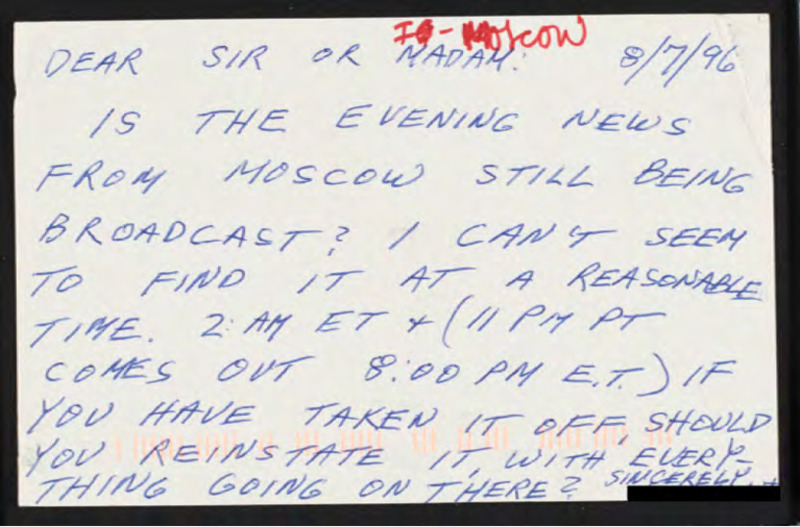 I - Moscow
DEAR SIR OR MADAM: 8/7/96
IS THE EVENING NEWS
FROM MOSCOW STILL BEING
BROADCAST? I CAN'T SEEM
TO FIND IT AT A REASONABLE
TIME. 2: AM ET + (11 PM PT
COMES OUT 8:00 PM E.T.) IF
YOU HAVE TAKEN IT OFF, SHOULD
YOU REINSTATE IT, WITH EVERY-
THING GOING ON THERE? SINCERELY,